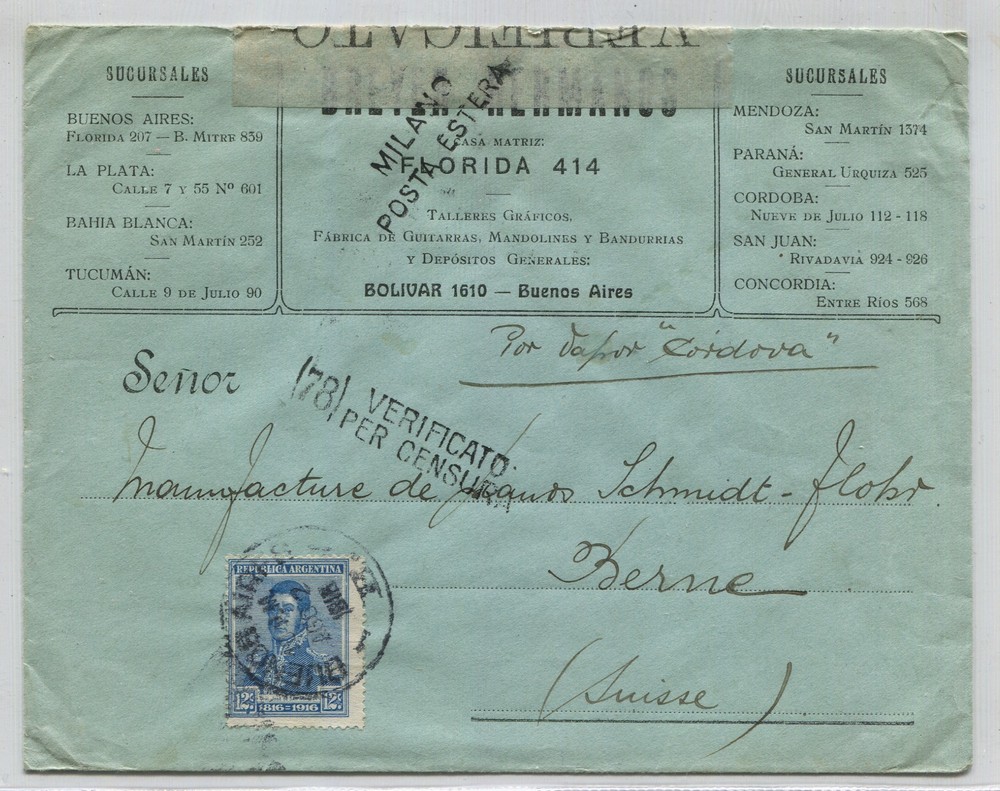 VERIFICATO
BREYER HERMANOS
MILANO
POSTA ESTERA
CASA MATRIZ:
FLORIDA 414
TALLERES GRÁFICOS,
FÁBRICA DE GUITARRAS, MANDOLINES Y BANDURRIAS
Y DEPÓSITOS GENERALES:
BOLIVAR 1610 — Buenos Aires
SUCURSALES
BUENOS AIRES:
FLORIDA 207 — B. MITRE 839
LA PLATA:
CALLE 7 Y 55 Nº 601
BAHIA BLANCA:
SAN MARTÍN 252
TUCUMÁN:
CALLE 9 DE JULIO 90
SUCURSALES
MENDOZA:
SAN MARTÍN 1374
PARANÁ:
GENERAL URQUIZA 525
CORDOBA:
NUEVE DE JULIO 112 - 118
SAN JUAN:
RIVADAVIA 924 - 926
CONCORDIA:
ENTRE RÍOS 568
Por Vapor "Cordova"
Señor
(78) VERIFICATO
PER CENSURA
Manufacture de pianos Schmidt - Flohr
Berne
(Suisse)
REPUBLICA ARGENTINA
12c 12c
1816=1916
BUENOS AIRES